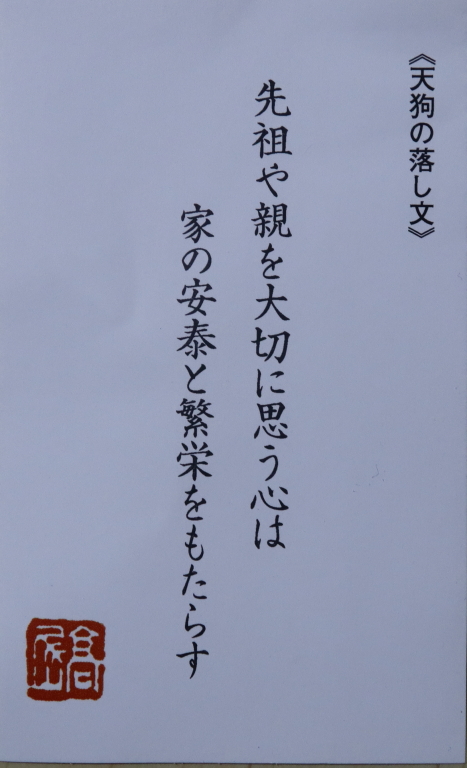 《天狗の落し文》
先祖や親を大切に思う心は
家の安泰と繁栄をもたらす